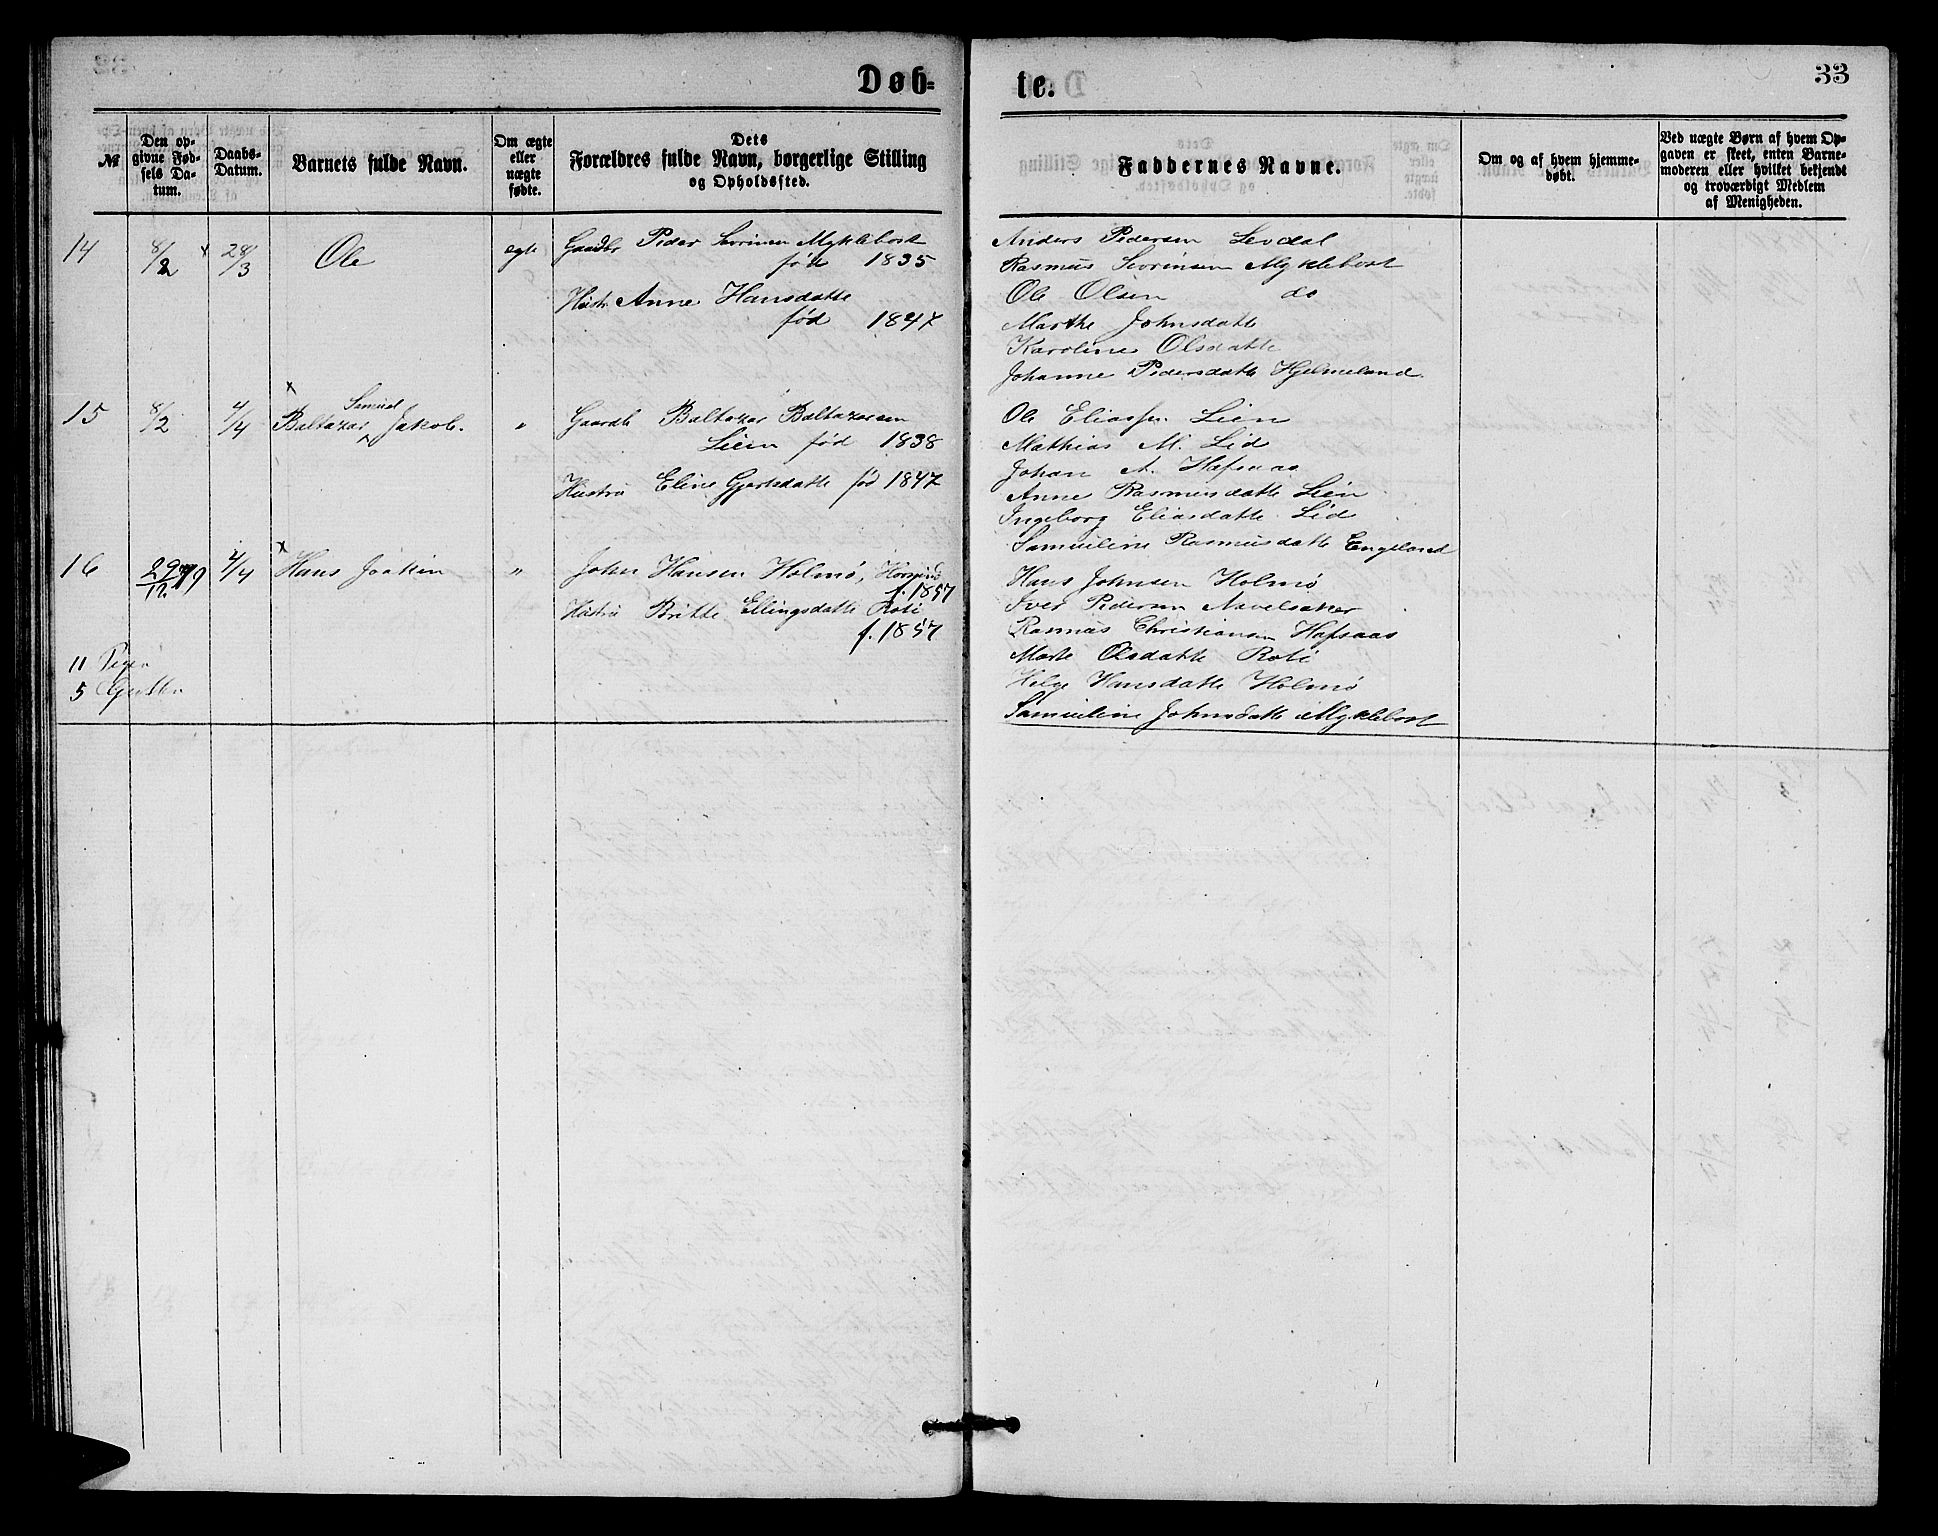 Døb-
te.
33
№
Den op-
givne Fød-
sels Da-
tum.
Daabs-
Datum.
Barnets fulde Navn.
Om ægte
eller
uægte
fødte.
Dets
Forældres fulde Navn, borgerlige Stilling
og Opholdssted.
Faddernes Navne.
Om og af hvem hjemme-
døbt.
Ved uægte Børn af hvem Op-
gaven er skeet, enten Barne-
moderen eller hvilket bekjendt
og troværdigt Medlem
af Menigheden.
14 8/2 x 28/3 Ole egte Gaardbr Peder Sevrinsen Myklebost
født 1835
Hustr Anne Hansdatte
fød 1847
Anders Pedersen Levdal
Rasmus Sevrinsen Myklebost
Ole Olsen do
Marthe Johnsdatte
Karoline Olsdatte
Johanne Pedersdatte Hjelmeland
x
15 8/2 4/4 Baltazar Samuel Jakob. " Gaardb Baltazar Baltazarsen
Lien fød 1838
Hustru Eline Gjertsdatte fød 1847
Ole Eliassen Lien
Mathias M. Lid
Johan A. Hafsaas
Anne Rasmusdatte Lien
Ingeborg Eliasdatte Lid
Samueline Rasmusdatte Engeland
x
16 29/12 79 4/4 Hans Joakim " John Hansen Holmø,
f. 1857
Hustru Britte Ellingsdatte Roti
f. 1857
Hans Johnsen Holmø
Iver Pedersen Navelsaker
Rasmus Christiansen Hafsaas
Marte Olsdatte Roti
Helge Hansdatte Holmø
Samueline Johnsdatte Myklebost
11 Piger
5 Gutter